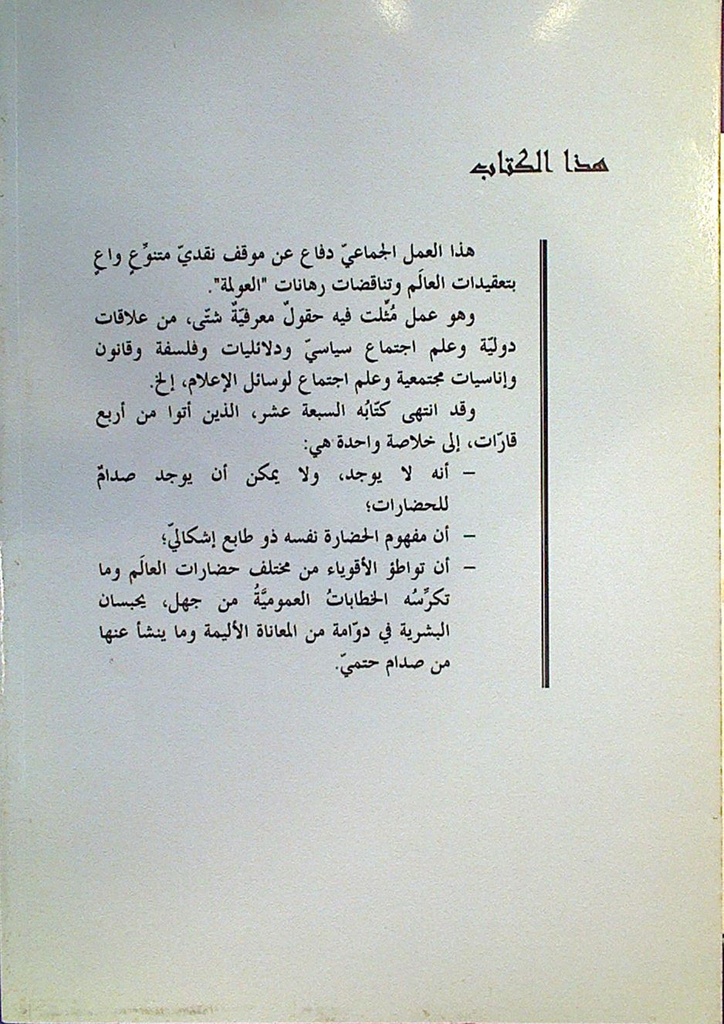 هذا الكتاب
هذا العمل الجماعيّ دفاع عن موقف نقديّ متنوِّعٍ واعٍ
بتعقيدات العالَم وتناقضات رهانات "العولمة".
وهو عمل مُثِّلت فيه حقولٌ معرفيّةٌ شتّى، من علاقات
دوليّة وعلم اجتماع سياسيّ ودلائليات وفلسفة وقانون
وإناسيات مجتمعية وعلم اجتماع لوسائل الإعلام، إلخ.
وقد انتهى كتّابُه السبعة عشر، الذين أتوا من أربع
قارّات، إلى خلاصة واحدة هي:
– أنه لا يوجد، ولا يمكن أن يوجد صدامٌ
للحضارات؛
– أن مفهوم الحضارة نفسه ذو طابع إشكاليّ؛
– أن تواطؤ الأقوياء من مختلف حضارات العالَم وما
تكرِّسُه الخطاباتُ العموميَّةُ من جهل، يحبسان
البشرية في دوّامة من المعاناة الأليمة وما ينشأ عنها
من صدام حتميّ.